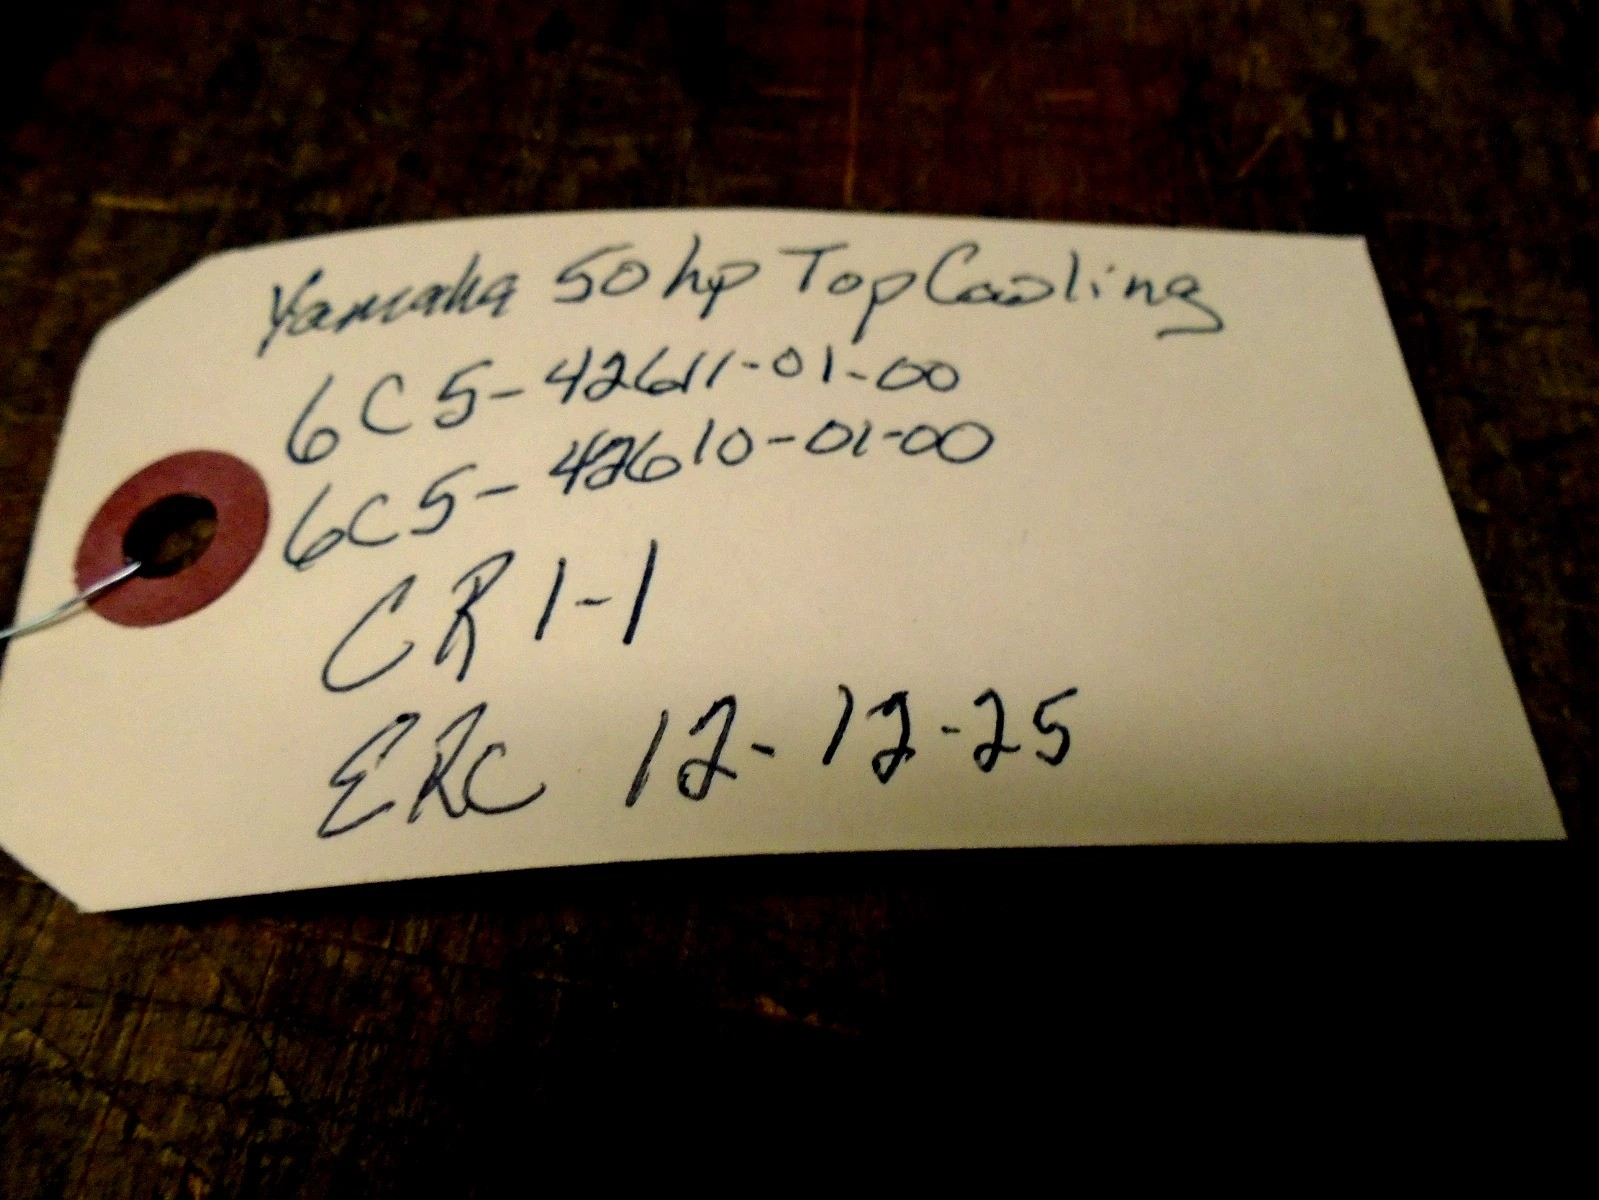 Yamaha 50hp Top Cooling
6C5-42611-01-00
6C5-42610-01-00
CR 1-1
ERC 12-12-25